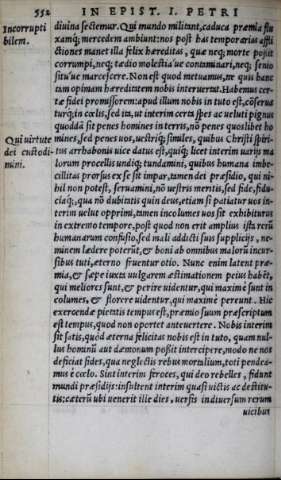 552 IN EPIST. I. PETRI
Incorrupti
bilem.
diuina sectemur. Qui mundo militant, caduca præmia flu
xamq; mercedem ambiunt: nos post has temporarias affli
ctiones manet illa felix hæreditas, quæ neq; morte possit
corrumpi, neq; tædio molestia'ue contaminari, neq; senio
situ'ue marcescere. Non est quod metuamus, ne quis hanc
tam opimam hæreditatem nobis interuertat. Habemus cer-
tæ fidei promissorem: apud illum nobis in tuto est, cōserua
turq; in cœlis, sed ita, ut interim certa spes ac ueluti pignus
quoddā sit penes homines in terris, nō penes quoslibet ho
Qui uirtute
dei custodi-
mini.
mines, sed penes uos, uestriq; similes, quibus Christi spiri-
tus arrhabonis uice datus est, quiq; licet interim uarijs ma
lorum procellis undiq; tundamini, quibus humana imbe-
cillitas prorsus ex se sit impar, tamen dei præsidio, qui ni-
hil non potest, seruamini, nō uestris meritis, sed fide, fidu-
ciaq;, qua nō dubitatis quin deus, etiam si patiatur uos in-
terim uelut opprimi, tamen incolumes uos sit exhibiturus
in extremo tempore, post quod non erit amplius ista rerū
humanarum confusio, sed mali addicti suis supplicijs, ne-
minem lædere poterūt, & boni ab omnibus malorū incur-
sibus tuti, æterno fruentur otio. Nunc enim latent præ-
mia, & sæpe iuxta uulgarem æstimationem peius habēt,
qui meliores sunt, & perire uidentur, qui maximè sunt in
columes, & florere uidentur, qui maximè pereunt. Hic
exercendæ pietatis tempus est, præmio suum præscriptum
est tempus, quod non oportet anteuertere. Nobis interim
sit satis, quòd æterna felicitas nobis est in tuto, quam nul-
lus hominū aut dæmonum possit intercipere, modo ne nos
deficiat fides, qua neglectis rebus mortalium, toti pendea-
mus è cœlo. Sint interim feroces, qui deo rebelles, fidunt
mundi præsidijs: insultent interim quasi uictis ac destitu-
tis: cæterū ubi uenerit ille dies, uersis in diuersum rerum
uicibus